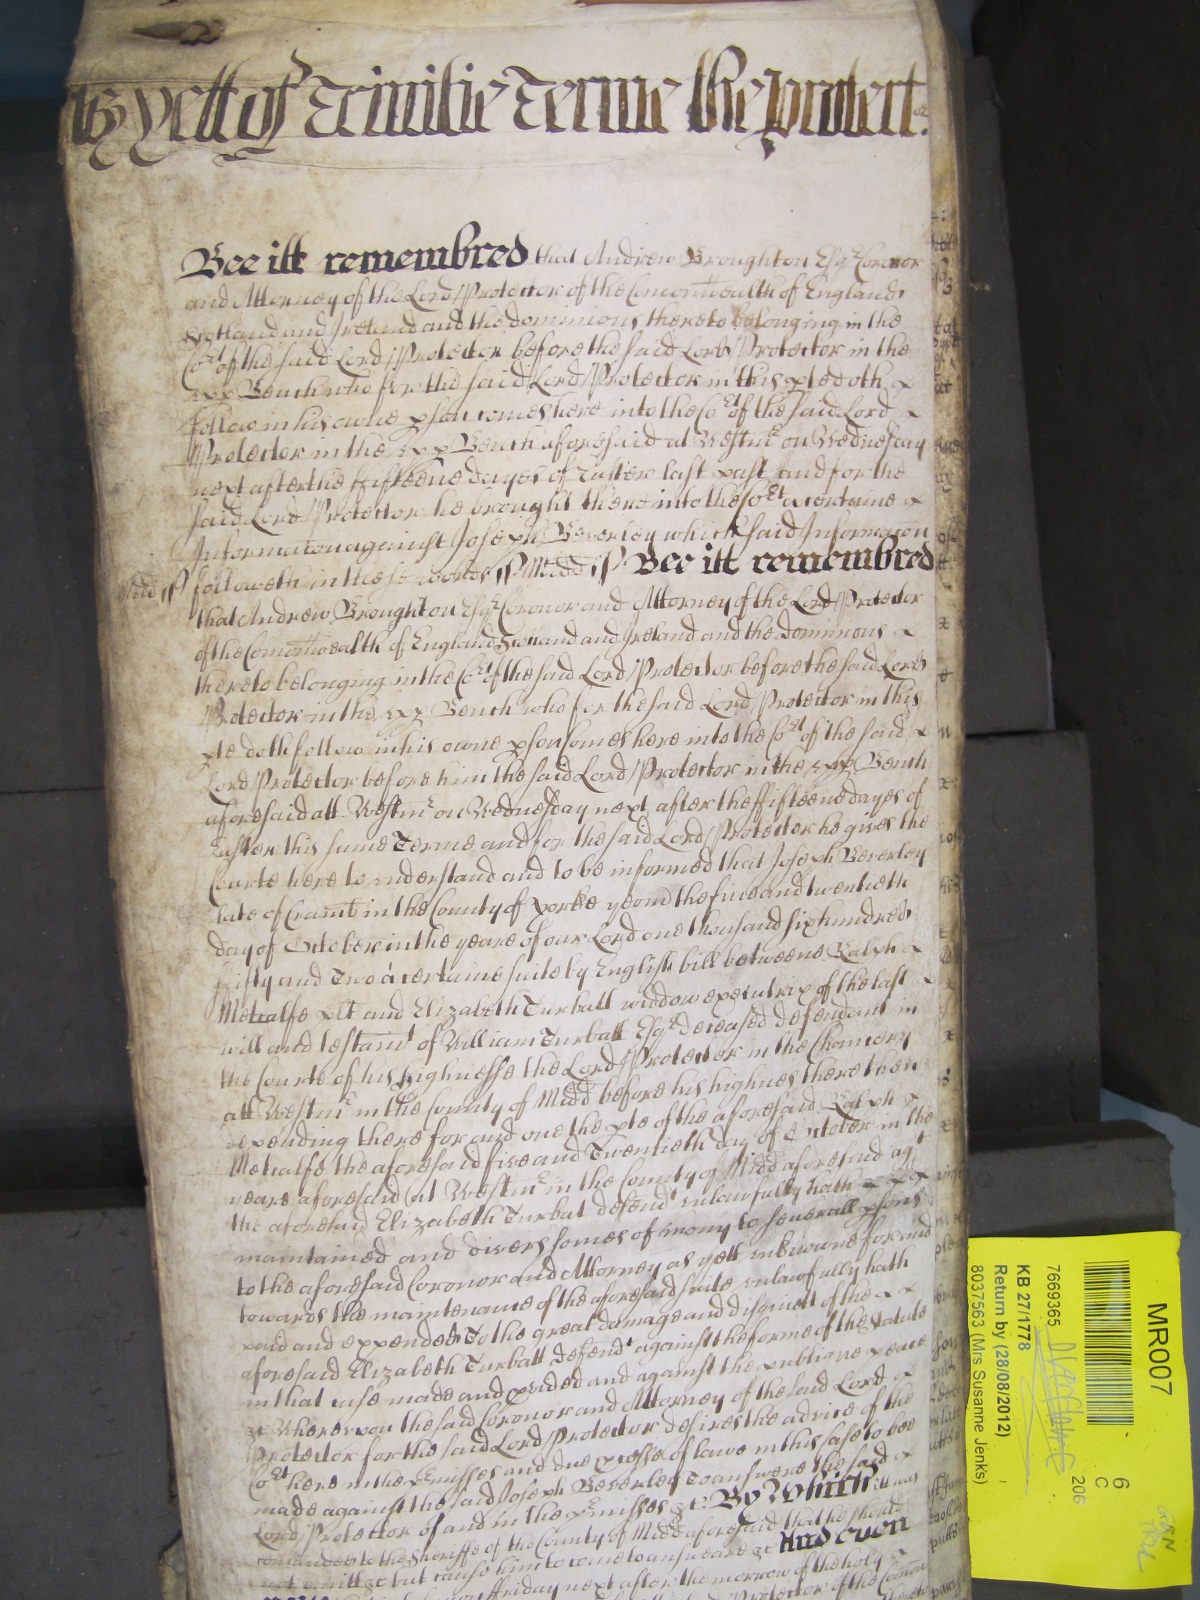 As yett of Trinitie Terme the protect:
Bee itt remembred that Andrew Broughton Esqr Coronor
and Attorney of the Lord Protector of the Comonwealth of England
Scotland and Ireland and the dominions thereto belonging in the
Cot of the said Lord Protector before the said Lord Protector in the
upp Bench who for the said Lord Protector in this pte doth
follow in his owne pson comes here into the Cot of the said Lord
Protector in the upp Bench aforesaid at Westmr on Wednesday
next after the fifteene dayes of Easter last past and for the
said Lord Protector he brought there into the Cot a certaine
Informacon against Joseph Beverley which said Informacon
Midd ss followeth in these words ss Midd ss Bee itt remembred
that Andrew Broughton Esqr Coronor and Attorney of the Lord Protector
of the Comonwealth of England Scotland and Ireland and the dominions
thereto belonging in the Cot of the said Lord Protector before the said Lord
Protector in the upp Bench who for the said Lord Protector in this
pte doth follow in his owne pson comes here into the Cot of the said
Lord Protector before him the said Lord Protector in the upp Bench
aforesaid att Westmr on Wednesday next after the fifteene dayes of
Easter this same Terme and for the said Lord Protector he gives the
Courte here to understand and to be informed that Joseph Beverley
late of in the County of Yorke yeom the five and twentieth
day of October in the yeare of our Lord one thousand six hundred
fifty and Two a certaine suite by English bill betweene Ralph
Metcalfe plt and Elizabeth Turball widdow executrix of the last
will and testamt of William Turball Esqr deceased defendant in
the Courte of his highnesse the Lord Protector in the Chancery
att Westmr in the County of Midd before his highnes there then
depending there for and one the pte of the aforesaid Ralph
Metcalfe the aforesaid five and Twentieth day of October in the
yeare aforesaid at Westmr in the County of Midd aforesaid agt
the aforesaid Elizabeth Turbat defendt unlawfully hath
maintained and divers somes of mony to severall psons
to the aforesaid Coronor and Attorney as yett unknowne for and
towards the maintenance of the aforesaid suite unlawfully hath
paid and expended To the great damage and disquiett of the
aforesaid Elizabeth Turball Defendt against the forme of the Statute
in that case made and pvided and against the publique peace
&c Whereupon the said Coronor and Attorney of the said Lord
Protector for the said Lord Protector desires the advice of the
Cot here in the pmisses and due pcesse of lawe in this case to bee
made against the said Joseph Beverley To answere the said
Lord Protector of and in the pmisses &c By Which itt was
comanded to the Sheriffe of the County of Midd aforesaid that he should
not omitt &c but cause him to come to answeare &c And even
friday next after the morrow of the holy
Protector of the Comon
MR007
6
C
206
7669365
KB 27/1778
Return by (28/08/2012)
8037563 (Mrs Susanne Jenks)